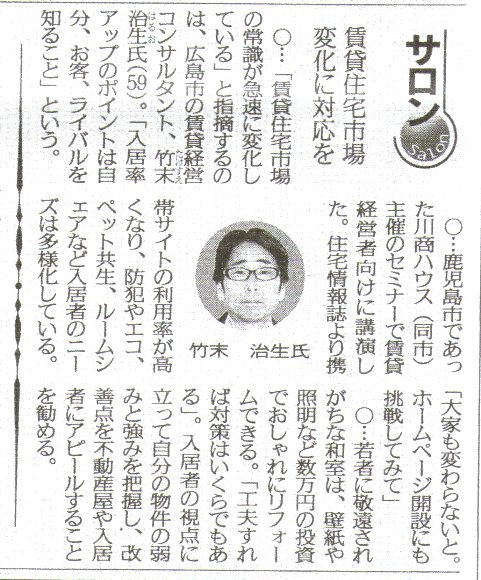 サロン
Salon
賃貸住宅市場
変化に対応を
○…「賃貸住宅市場
の常識が急速に変化し
ている」と指摘するの
は、広島市の賃貸経営
コンサルタント、竹末
たけすえ
治生氏(59)。「入居率
はるお
アップのポイントは自
分、お客、ライバルを
知ること」という。
○…鹿児島市であっ
た川商ハウス(同市)
主催のセミナーで賃貸
経営者向けに講演し
た。住宅情報誌より携
竹末 治生氏
帯サイトの利用率が高
くなり、防犯やエコ、
ペット共生、ルームシ
ェアなど入居者のニー
ズは多様化している。
「大家も変わらないと。
ホームページ開設にも
挑戦してみて」
○…若者に敬遠され
がちな和室は、壁紙や
照明など数万円の投資
でおしゃれにリフォー
ムできる。「工夫すれ
ば対策はいくらでもあ
る」。入居者の視点に
立って自分の物件の弱
みと強みを把握し、改
善点を不動産屋や入居
者にアピールすること
を勧める。